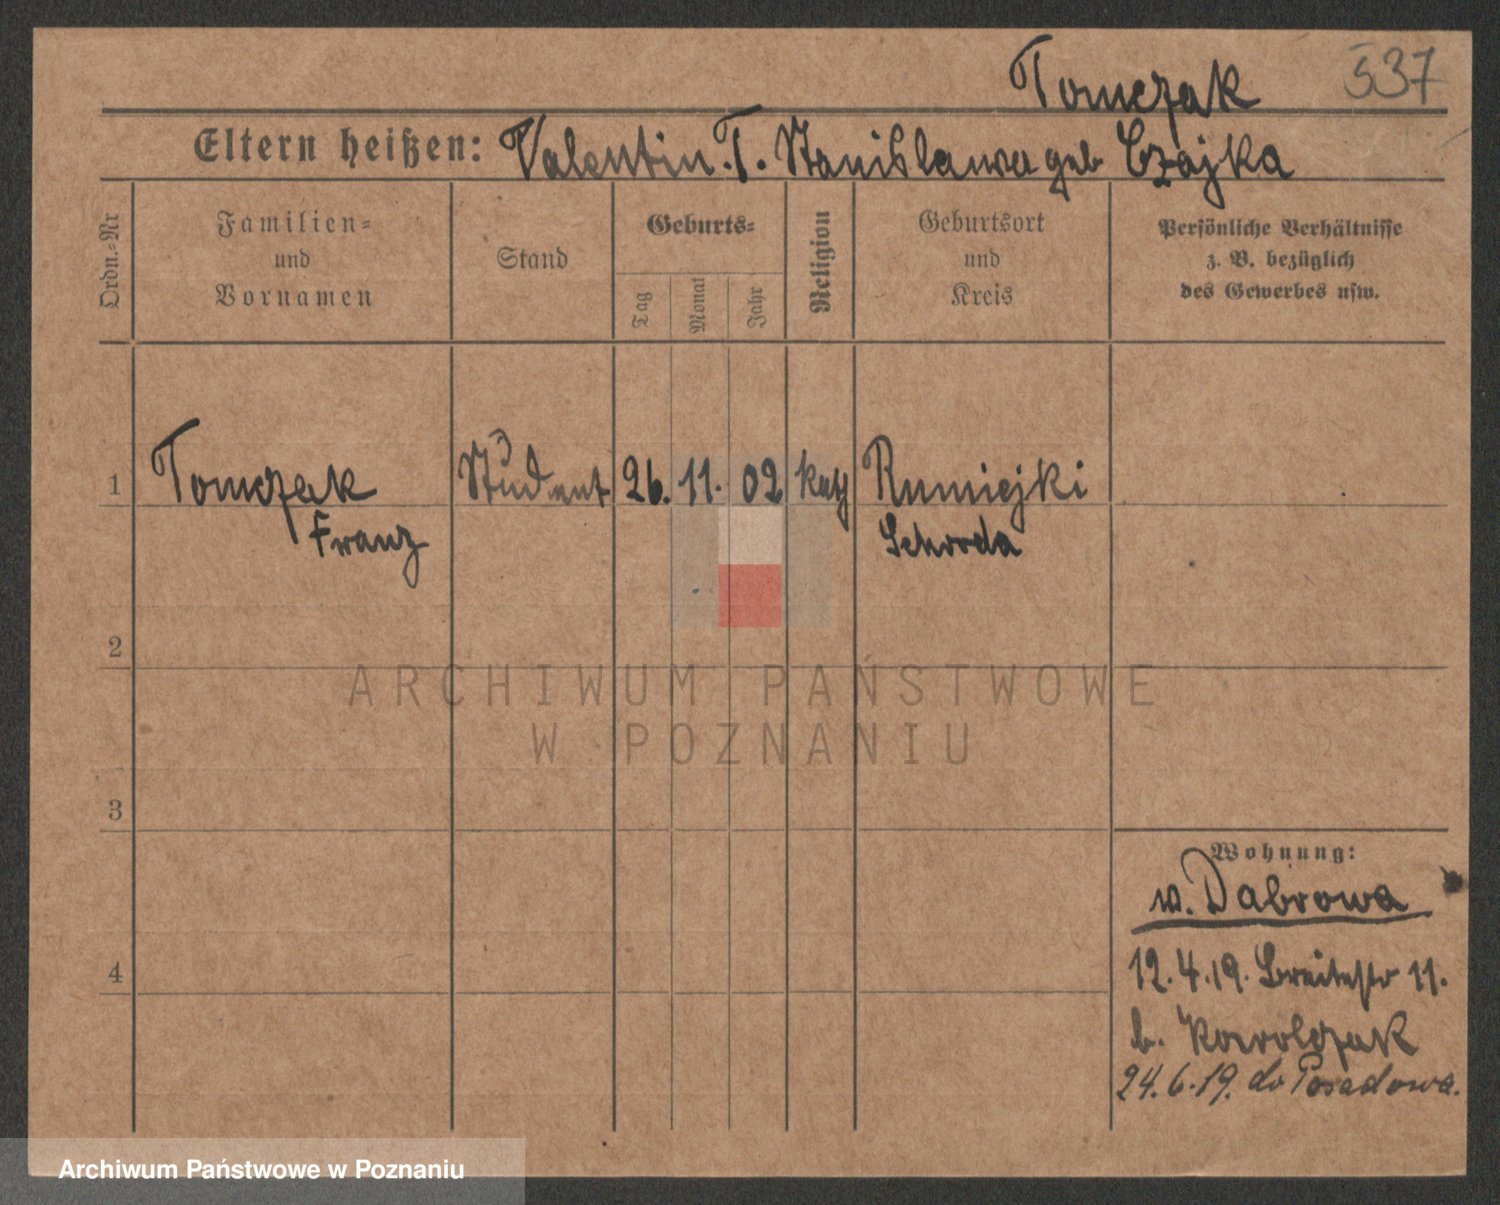 Tomczak 537
Eltern heißen: Valentin T. Stanislawa geb Czajka
Ordn.-Nr
Familien-
und
Vornamen
Stand
Geburts-
Tag
Monat
Jahr
Religion
Geburtsort
und
Kreis
Persönliche Verhältnisse
z. B. bezüglich
des Gewerbes usw.
1 Tomczak Student 26. 11. 02 kath Rumiejki
Franz Schroda
2
ARCHIWUM PAŃSTWOWE
W POZNANIU
3
Wohnung:
w. Dabrowa
4
12.4.19. Breitestr 11.
b. Kowolczak
24.6.19. do Posadowa.
Archiwum Państwowe w Poznaniu